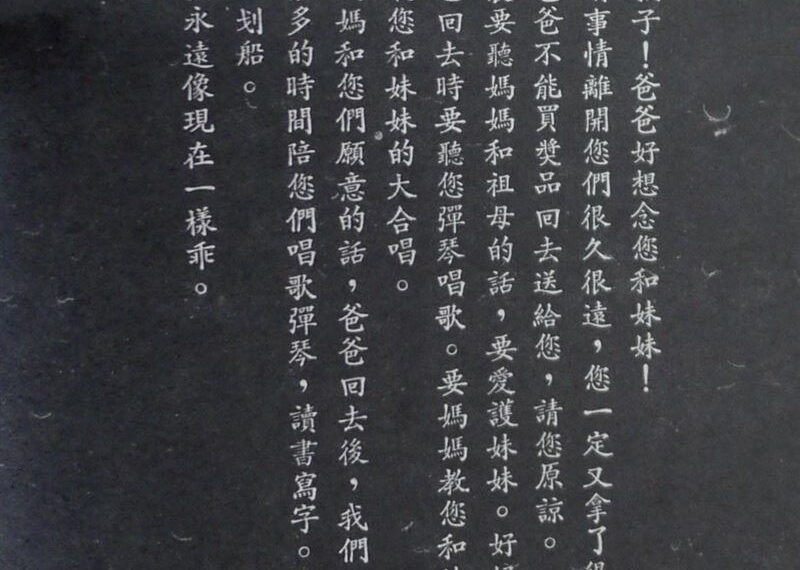 子！爸爸好想念您和妹妹！
事情離開您們很久很遠，您一定又拿了很
爸不能買獎品回去送給您，請您原諒。
要聽媽媽和祖母的話，要愛護妹妹。好
回去時要聽您彈琴唱歌。要媽媽教您和
您和妹妹的大合唱。
媽和您們願意的話，爸爸回去後，我們
多的時間陪您們唱歌彈琴，讀書寫字。
划船。
永遠像現在一樣乖。